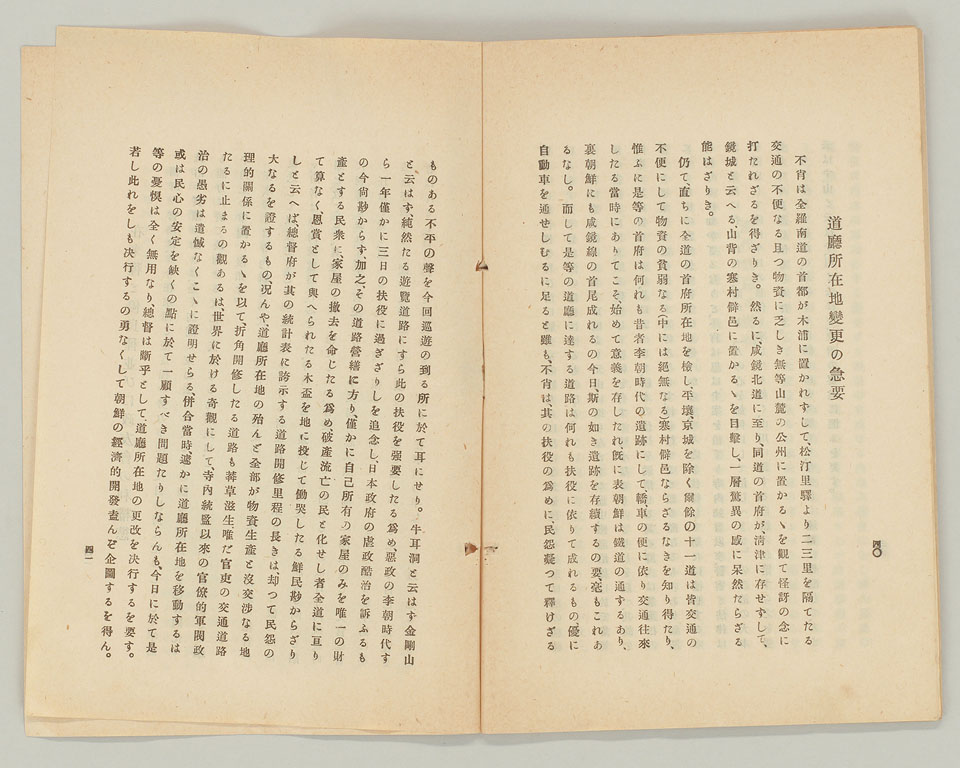 道廳所在地變更の急要
不肖は全羅南道の首都が木浦に置かれずして、松汀里驛より二三里を隔てたる
交通の不便なる且つ物資に乏しき無等山麓の公州に置かるゝを観て怪訝の念に
打たれざるを得ざりき。然るに、咸鏡北道に至り、同道の首府が、淸津に存せずして、
鏡城と云へる、山背の寒村僻邑に置かるゝを目擊し、一層驚異の感に呆然たらざる
能はざりき。
仍て、直ちに全道の首府所在地を檢し、平壤、京城を除く爾餘の十一道は皆交通の
不便にして物資の貧弱なる(中には絕無なる)寒村僻邑ならざるなきを知り得たり、
惟ふに是等の首府は何れも昔者李朝時代の遺跡にして轎、車の便に依り交通往來
したる當時にありてこそ、始めて意義を存したれ、旣に表朝鮮は鐵道の通ずるあり、
裏朝鮮にも咸鏡線の首尾成れるの今日、斯の如き遺跡を存續するの要、毫もこれあ
るなし。而して是等の道廳に達する道路は何れも扶役に依りて成れるもの、優に
自動車を通せしむるに足ると雖も、不肖は、其の扶役の爲めに、民怨凝つて釋けざる
四〇
ものある不平の聲を今回巡遊の到る所に於て耳にせり。牛耳洞と云はず金剛山
と云はず純然たる遊覽道路にすら此の扶役を强要したる爲め、惡政の李朝時代す
ら一年僅かに三日の扶役に過ぎざりしを追念し、日本政府の虐政酷治を訴ふるも
の今尙尠からず、加之、その道路營繕に方り、僅かに自己所有の家屋のみを唯一の財
產とする民衆に、家屋の撤去を命じたる爲め破產流亡の民と化せし者全道に亘り
て算なく、恩賞として與へられたる木盃を地に投じて慟哭したる鮮民尠からざり
しと云へば、總督府が其の統計表に誇示する道路開修里程の長きは却つて民怨の
大なるを證するもの、況んや、道廳所在地の殆んど全部が物資生產と沒交涉なる地
理的關係に置かるゝを以て、折角開修したる道路も蓴草滋生、唯だ官吏の交通道路
たるに止まるの觀あるは、世界に於ける奇觀にして、寺內統監以來の官僚的軍閥政
治の愚劣は遺憾なくこゝに證明せらる、併合當時、遽かに道廳所在地を移動するは
或は民心の安定を缺くの點に於て一顧すべき問題たりしならんも、今日に於ては是
等の憂惧は全く無用なり總督は斷乎として、道廳所在地の更改を決行するを要す。
若し此れをしも決行するの勇なくして朝鮮の經濟的開發盍んぞ企圖するを得ん。
四一